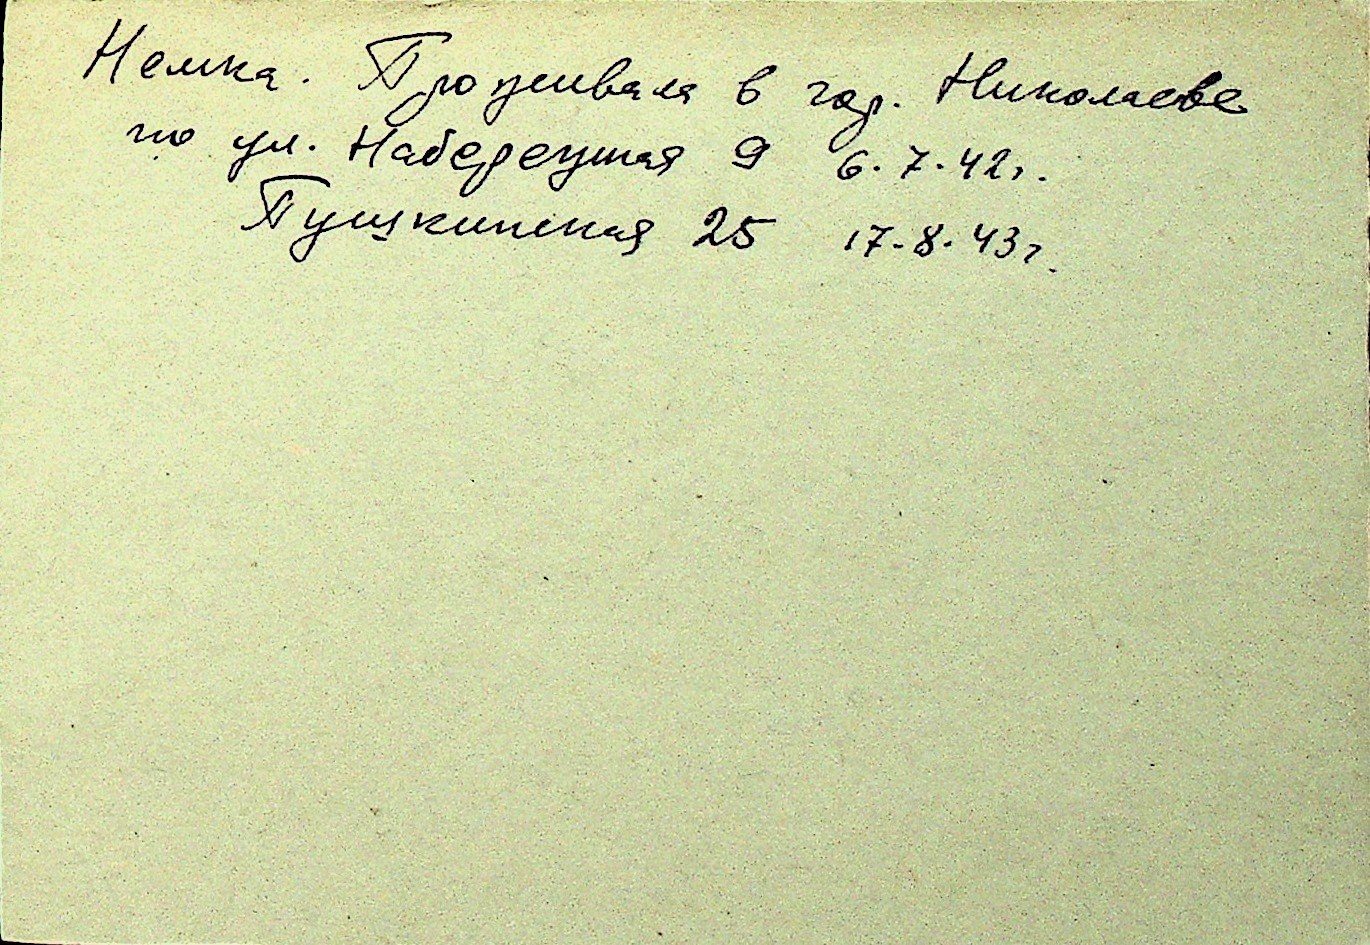 Немка. Проживала в гор. Николаеве
по ул. Набережная 9 6.7.42г.
Пушкинская 25 17.8.43г.